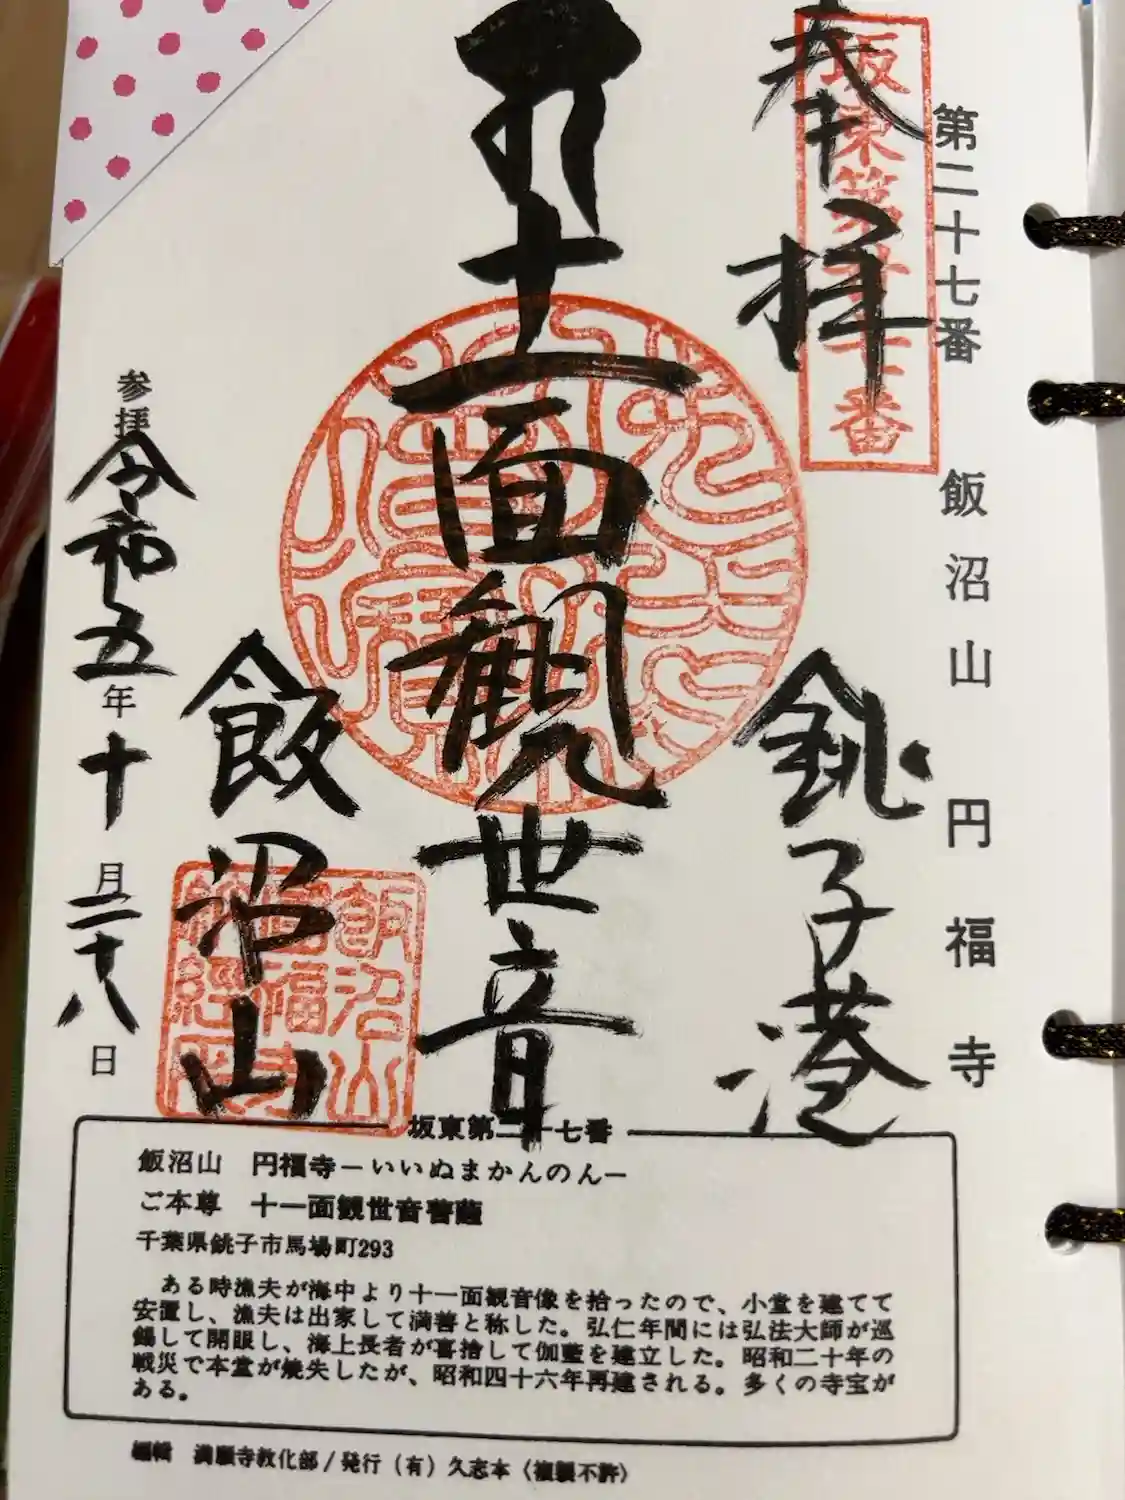 第二十七番 飯沼山 円福寺
奉拝
坂東第廿七番
銚子港
十一面観世音
飯沼山
飯沼山
円福寺
参拝 令和五年 十月二十八日
坂東第二十七番
飯沼山 円福寺－いいぬまかんのん－
ご本尊 十一面観世音菩薩
千葉県銚子市馬場町293
ある時漁夫が海中より十一面観音像を拾ったので、小堂を建てて
安置し、漁夫は出家して満善と称した。弘仁年間には弘法大師が巡
錫して開眼し、海上長者が喜捨して伽藍を建立した。昭和二十年の
戦災で本堂が焼失したが、昭和四十六年再建される。多くの寺宝が
ある。
編輯 満願寺教化部／発行（有）久志本〈複製不許〉